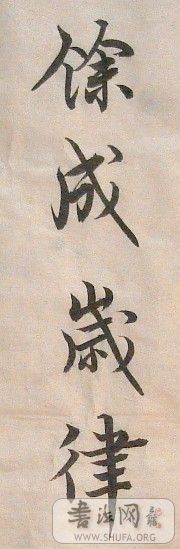 餘成歲律
书法网
WWW.SHUFA.ORG